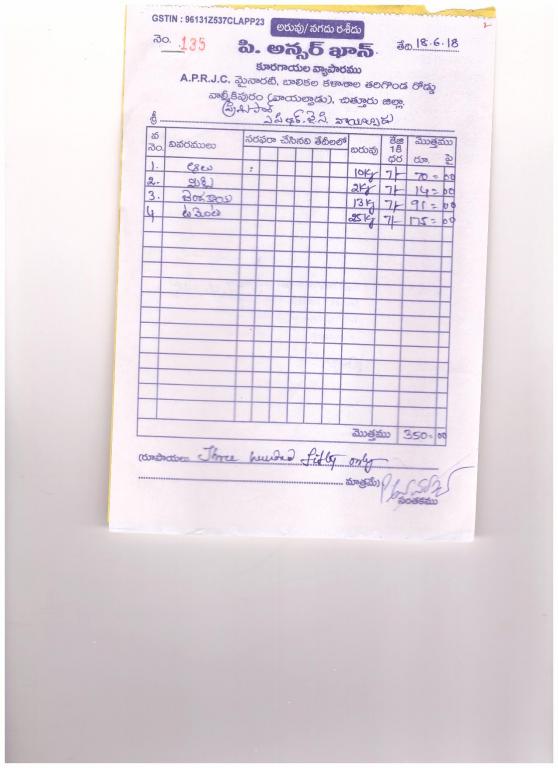 GSTIN : 96131Z537CLAPP23
అరువు/నగదు రశీదు
2
నెం. 135
తేది 18.6.18
పి. అన్సర్ ఖాన్.
కూరగాయల వ్యాపారము
A.P.R.J.C. మైనారటి, బాలికల కళాశాల తరిగొండ రోడ్డు
వాల్మీకిపురం (వాయల్పాడు), చిత్తూరు జిల్లా.
శ్రీ
వ నెం. వివరములు సరఫరా చేసినవి తేదీలలో బరువు కేజి 1కి ధర మొత్తము రూ. పై
1. ఆలు 10kg 7/- 70=00
2. 2kg 7/- 14=00
3. బెండకాయ 13kg 7/- 91=00
4. టమోటా 25kg 7/- 175=00
మొత్తము 350=00
(రూపాయలు Three hundred fifty only
మాత్రమే)
సంతకము